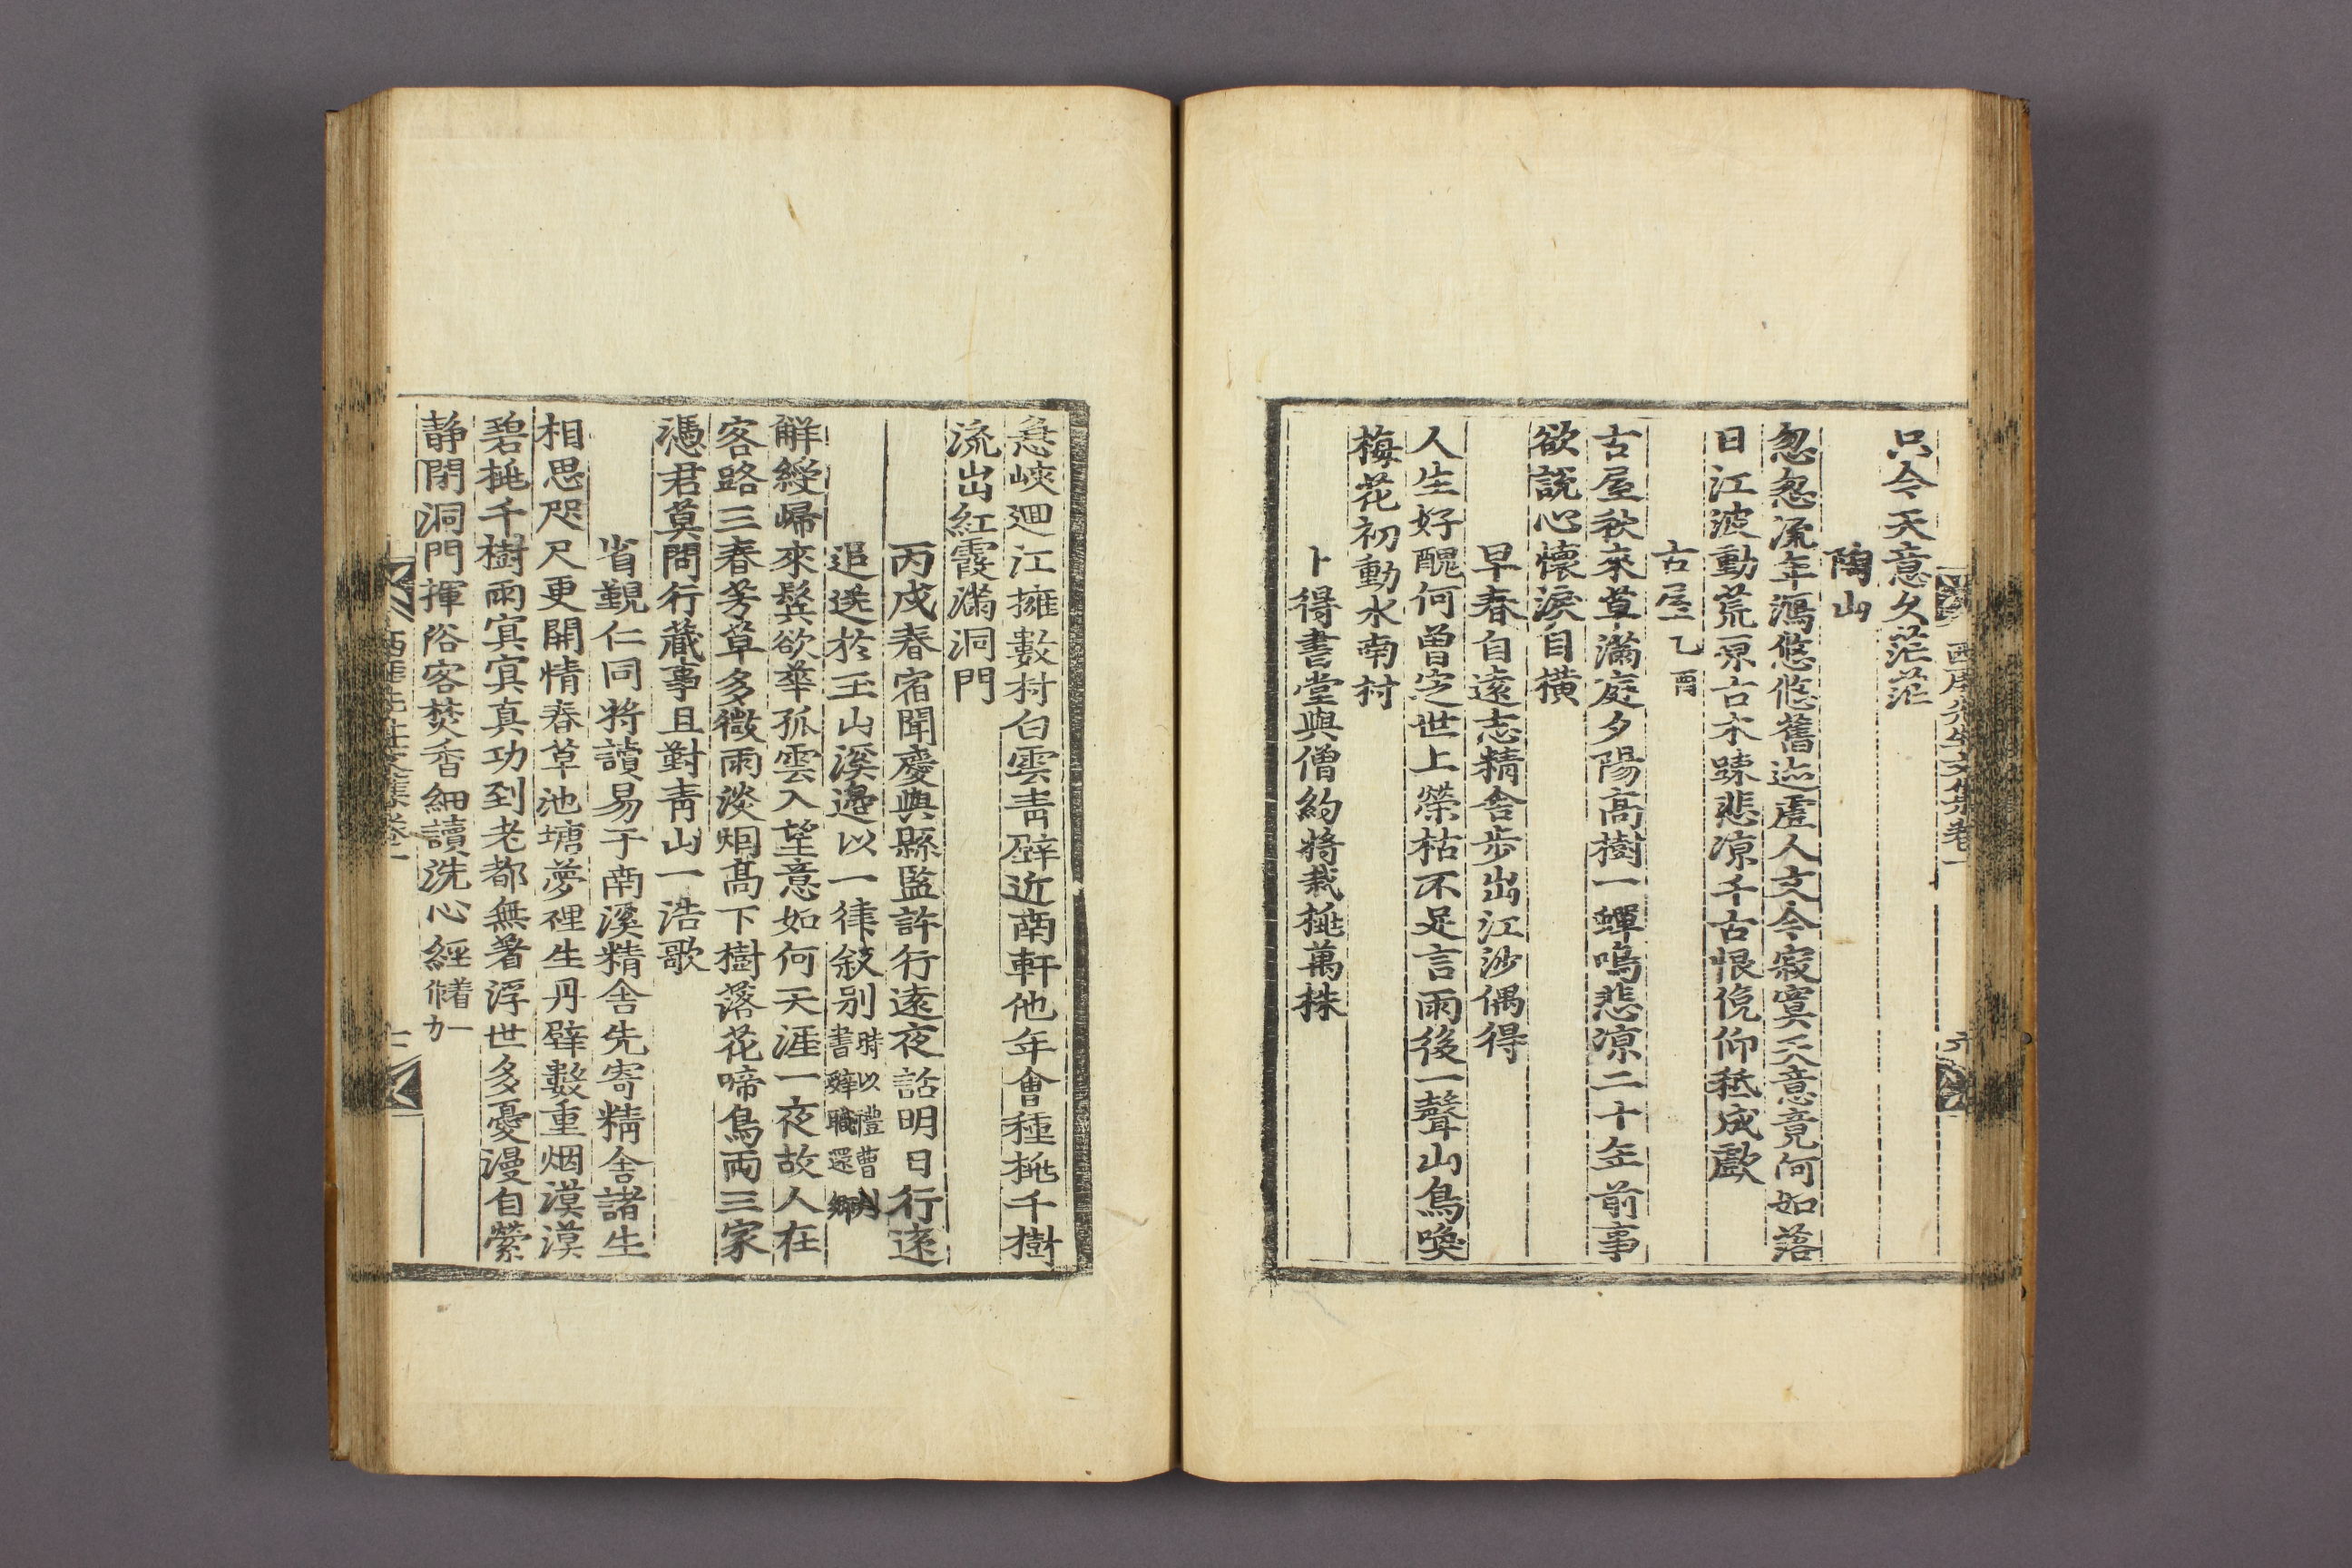 西厓先生文集卷一
六
只今天意久茫茫
陶山
忽忽流年瀉悠悠舊迹虛人文今寂寞天意竟何如落
日江波動荒原古木疎悲凉千古恨俛仰秪成歔
古屋乙酉
古屋秋來草滿庭夕陽高樹一蟬鳴悲凉二十年前事
欲說心懷淚自橫
早春自遠志精舍步出江沙偶得
人生好醜何曾定世上榮枯不足言雨後一聲山鳥喚
梅花初動水南村
卜得書堂與僧約將栽桃萬株
急峽迴江擁數村白雲青壁近南軒他年會種桃千樹
流出紅霞滿洞門
丙戌春宿聞慶與縣監許行遠夜話明日行遠
追送於玉山溪邊以一律叙别時以禮曹判書辭職還鄉
解綬歸來鬂欲華孤雲入望意如何天涯一夜故人在
客路三春芳草多微雨淡烟高下樹落花啼鳥兩三家
憑君莫問行藏事且對青山一浩歌
省觀仁同將讀易于南溪精舍先寄精舍諸生
相思咫尺更關情春草池塘夢裡生丹壁數重烟漠漠
碧桃千樹雨寘寘真功到老都無著浮世多憂漫自縈
静閉洞門揮俗客焚香細讀洗心經
西厓先生文集卷一
七